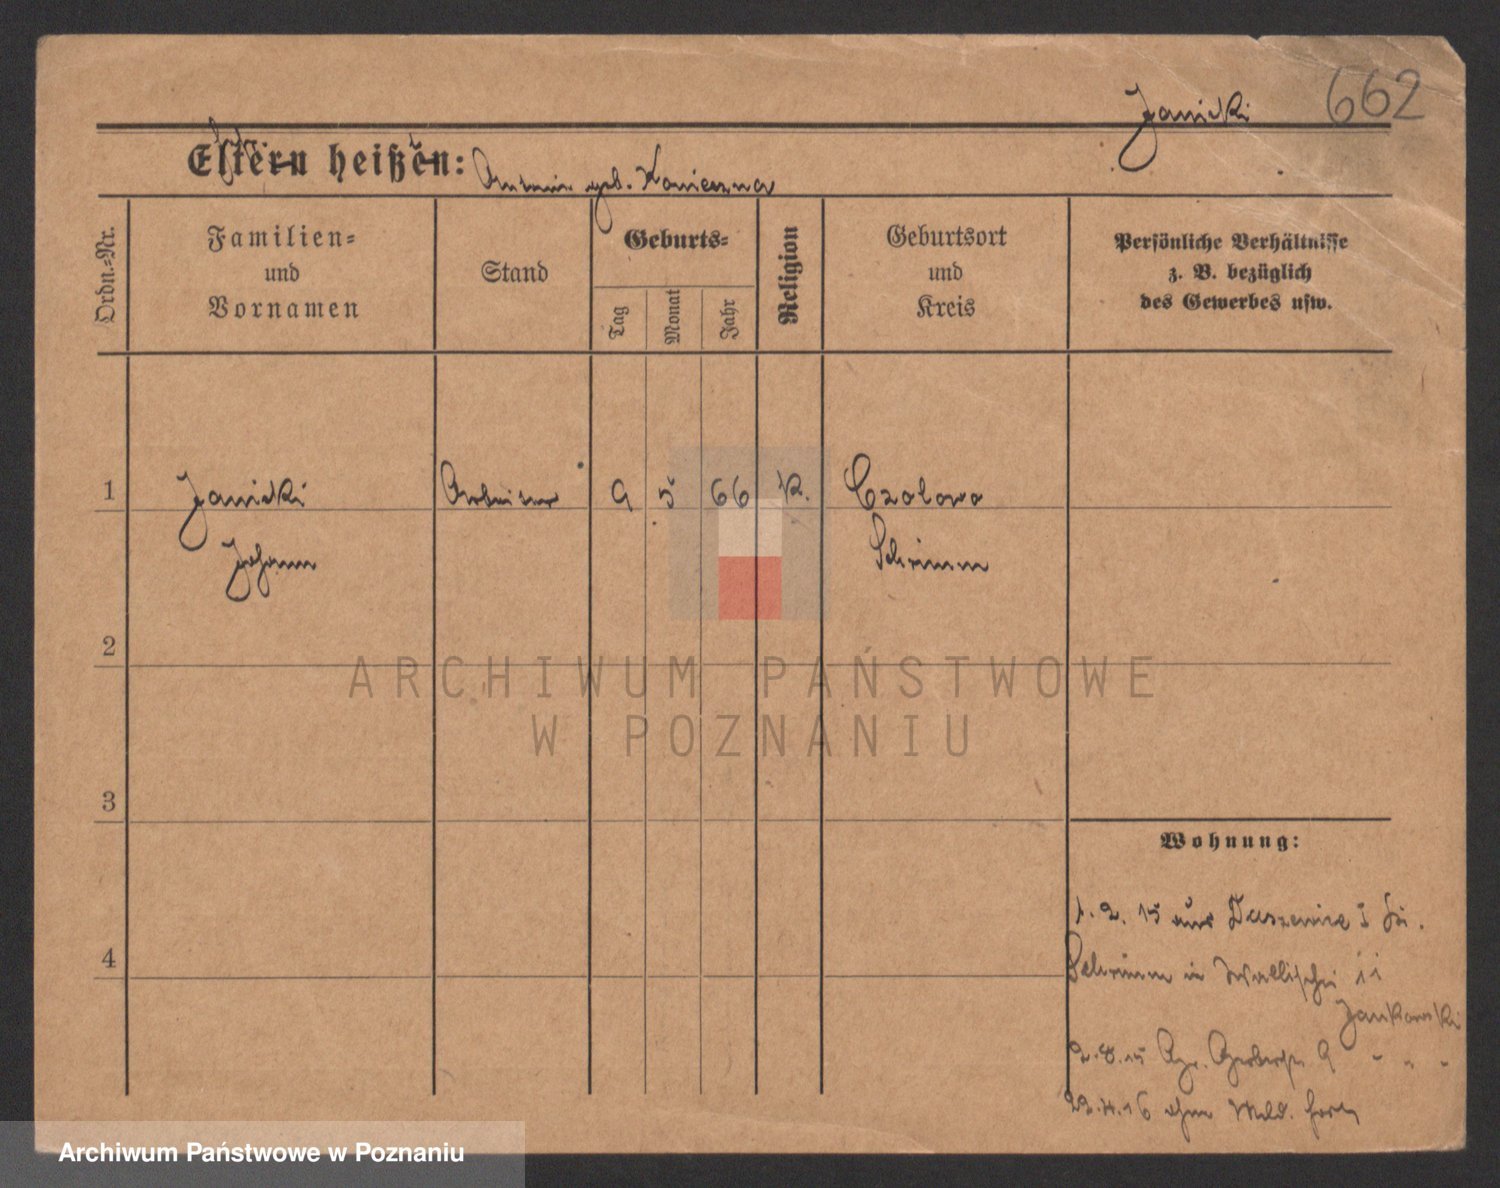 Janicki 662
Eltern heißen: geb. Konieczna
Ordn.-Nr.
Familien-
und
Vornamen
Stand
Geburts-
Tag
Monat
Jahr
Religion
Geburtsort
und
Kreis
Persönliche Verhältnisse
z. B. bezüglich
des Gewerbes usw.
1 Janicki Arbeiter 9 5 66 k. Czolowo
Johann Schrimm
2
3
4
Wohnung:
1. 2. 15 aus
Schrimm in Wallischei 11
Jankowski
2.8.15 Gr. Gerberstr. 9 " " "
22.4.16 ohne Meld. fort
ARCHIWUM PAŃSTWOWE
W POZNANIU
Archiwum Państwowe w Poznaniu